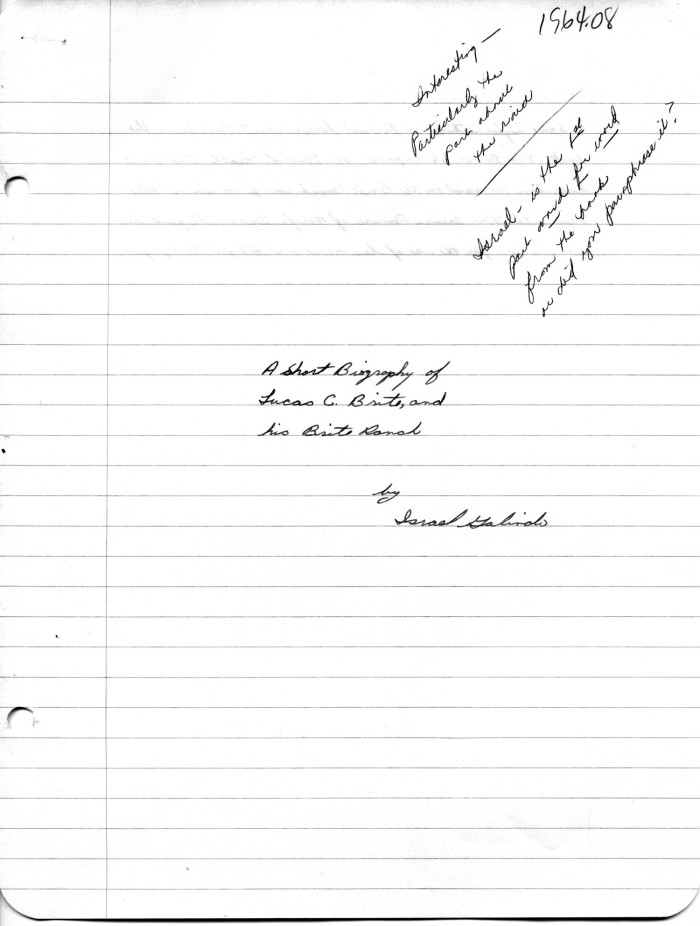 1964.08
Interesting —
Particularly the
part about
the raid
Israel - is the 1st
part word for word
from the book
or did you paraphrase it?
A Short Biography of
Lucas C. Brite, and
his Brite Ranch
by
Israel Galindo